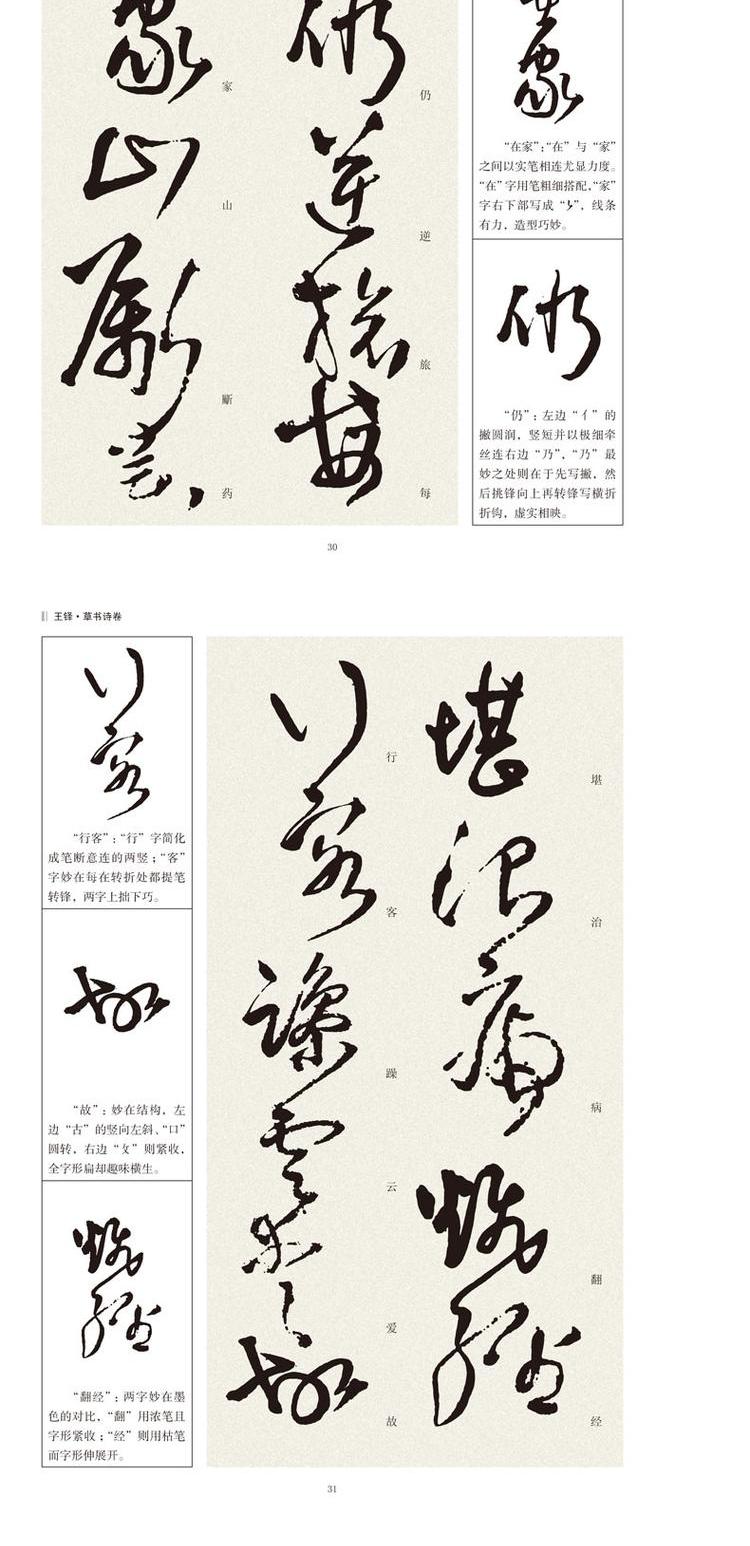 仍
逆
旅
每
家
山
斸
药
“在家”：“在” 与 “家”
之间以实笔相连尤显力度。
“在”字用笔粗细搭配，“家”
字右下部写成 “ ”，线条
有力，造型巧妙。
“仍”：左边 “亻” 的
撇圆润，竖短并以极细牵
丝连右边 “乃”，“乃” 最
妙之处则在于先写撇，然
后挑锋向上再转锋写横折
折钩，虚实相映。
30
王铎·草书诗卷
“行客”：“行” 字简化
成笔断意连的两竖；“客”
字妙在每在转折处都提笔
转锋，两字上拙下巧。
“故”：妙在结构，左
边 “古” 的竖向左斜、“口”
圆转，右边 “攵” 则紧收，
全字形扁却趣味横生。
“翻经”：两字妙在墨
色的对比，“翻” 用浓笔且
字形紧收；“经” 则用枯笔
而字形伸展开。
堪
治
病
翻
经
行
客
躁
云
爱
故
31